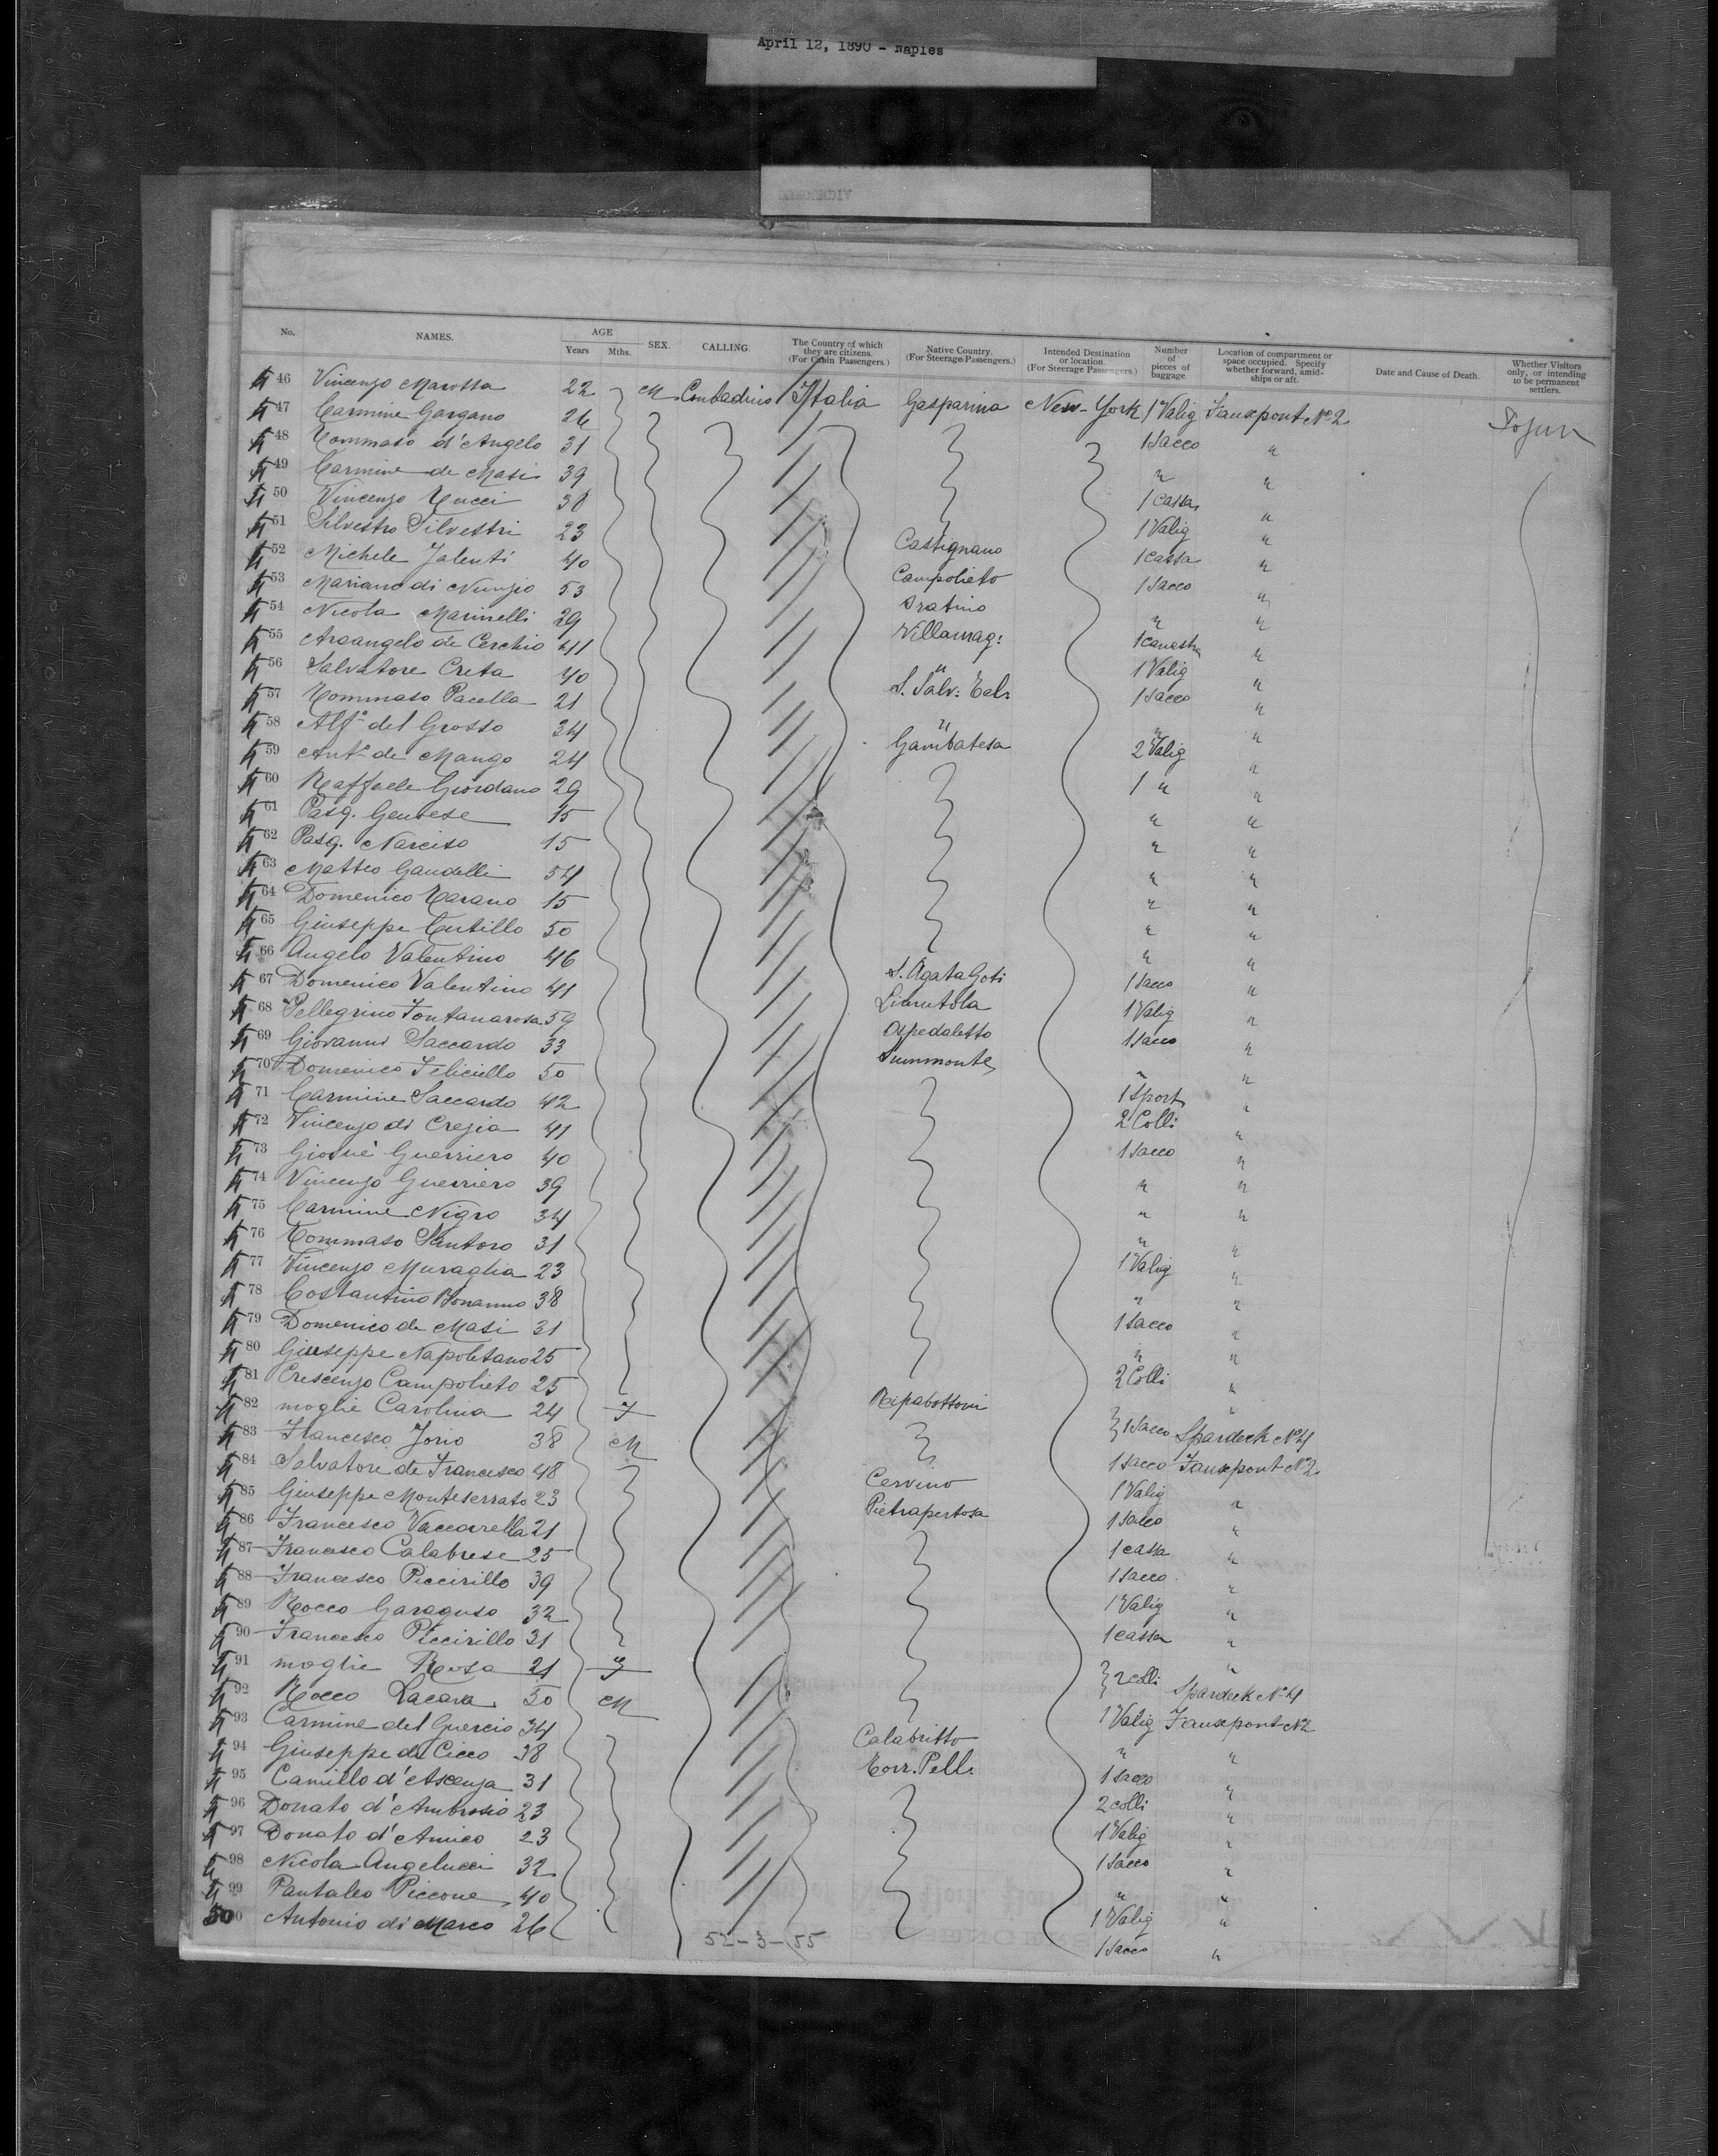 April 12, 1890 - Naples
No. NAMES. AGE Years Mths. SEX. CALLING. The Country of which they are citizens. (For Cabin Passengers) Native Country. (For Steerage Passengers.) Intended Destination or location. (For Steerage Passengers.) Number of pieces of baggage Location of compartment or space occupied. Specify whether forward, amidships or aft. Date and Cause of Death. Whether Visitors only, or intending to be permanent settlers.
46 Vincenzo Marossa 22 M Contadino Italia Gasparina New-York 1 Valig Fauxpont No 2
47 Carmine Gargano 26 1 Sacco "
48 Tommaso d'Angelo 31 " "
49 Carmine de Masi 39 1 Cassa "
50 Vincenzo Tucci 38 1 Valig "
51 Silvestro Silvestri 23 Castignano 1 Cassa "
52 Michele Jalenti 40 Campolieto 1 Sacco "
53 Mariano di Nunzio 53 "
54 Nicola Marinelli 29 Villamag: 1 canestra "
55 Arcangelo de Cerchio 41 " 1 Valig "
56 Salvatore Creta 40 S. Salv: Tel. 1 Sacco "
57 Tommaso Pacella 21 " " "
58 Alfo del Grosso 34 Gambatesa 2 Valig "
59 Anto de Mango 24 1 " "
60 Raffaele Giordano 29 " "
61 Pasq. Genbese 15 " "
62 Pasq. Narciso 15 " "
63 Matteo Gaudelli 54 " "
64 Domenico Tarano 15 " "
65 Giuseppe Curtillo 50 " "
66 Angelo Valentino 46 S. Agata Goti 1 Sacco "
67 Domenico Valentino 41 Limatola 1 Valig "
68 Pellegrino Fontanarosa 59 Ospedaletto 1 Sacco "
69 Giovanni Saccardo 33 Summonte " "
70 Domenico Feliciello 50 1 Sport "
71 Carmine Saccardo 42 2 Colli "
72 Vincenzo di Crezia 41 1 Sacco "
73 Giosuè Guerriero 40 " "
74 Vincenzo Guerriero 39 " "
75 Carmine Nigro 34 " "
76 Tommaso Santoro 31 1 Valig "
77 Vincenzo Muraglia 23 " "
78 Costantino Bonanno 38 1 Sacco "
79 Domenico de Masi 31 " "
80 Giuseppe Napoletano 25 2 Colli "
81 Crescenzo Campolieto 25 Ripabottoni "
82 moglie Carolina 24 F 1 Sacco Spardeck No 4
83 Francesco Jorio 38 M 1 Sacco Fauxpont No 2
84 Salvatore de Francesco 48 Cervino 1 Valig "
85 Giuseppe Monteserrato 23 Pietrapertosa 1 Sacco "
86 Francesco Vaccarella 21 1 cassa "
87 Francesco Calabrese 25 1 Sacco "
88 Francesco Piccirillo 39 1 Valig "
89 Rocco Garaguso 32 1 cassa "
90 Francesco Piccirillo 31 "
91 moglie Rosa 21 F 2 colli Spardeck No 4
92 Rocco Lacava 50 M 1 Valig Fauxpont No 2
93 Carmine del Guercio 34 Calabritto " "
94 Giuseppe de Cicco 38 Torr. Pell. 1 Sacco "
95 Camillo d'Ascenza 31 2 colli "
96 Donato d'Ambrosio 23 1 Valig "
97 Donato d'Amico 23 1 Sacco "
98 Nicola Angelucci 32 " "
99 Pantaleo Piccone 40 1 Valig "
50 0 Antonio di Marco 26 1 Sacco "
52-3-55